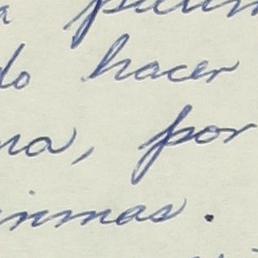 do hacer
na, por
inmas.